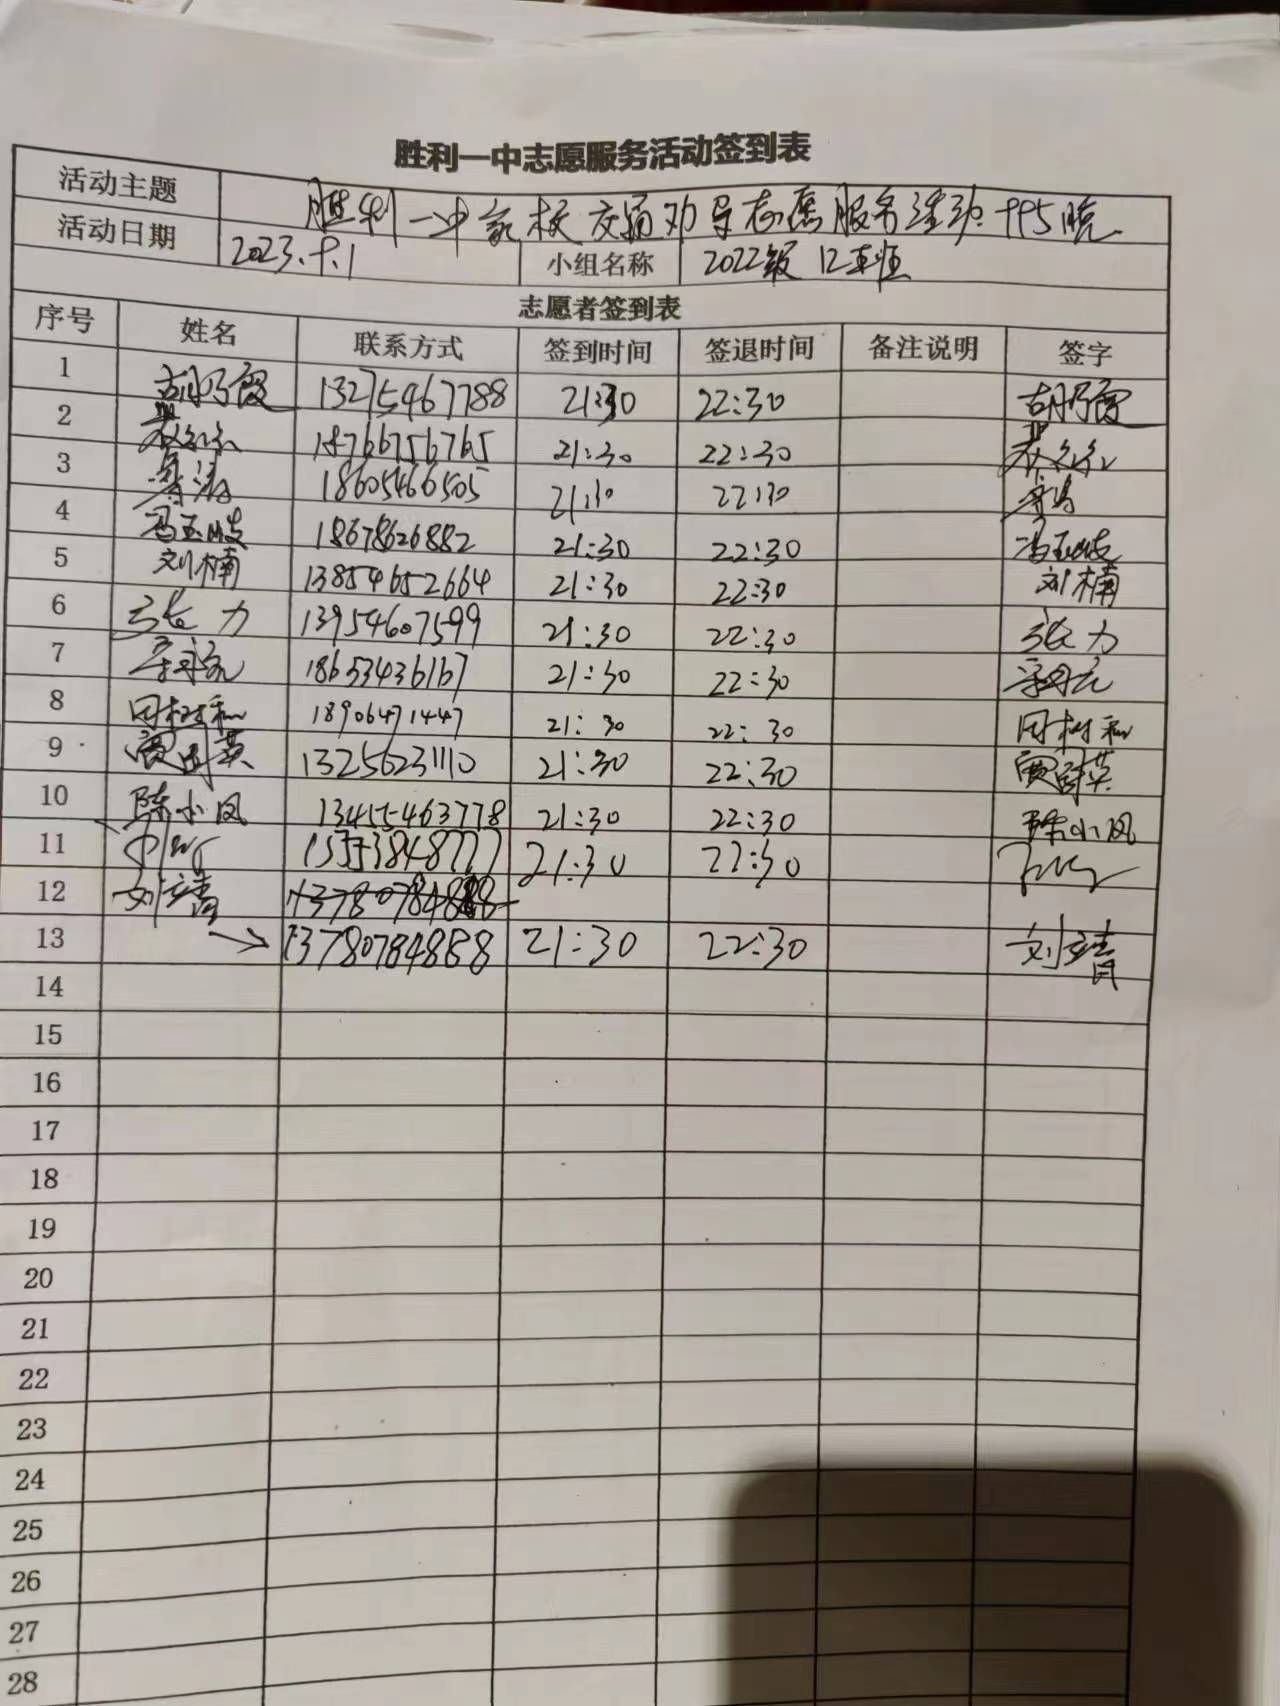 胜利一中志愿服务活动签到表
活动主题 胜利一中家校交通劝导志愿服务活动
活动日期 2023.9.1 小组名称 2022级12班
志愿者签到表
序号 姓名 联系方式 签到时间 签退时间 备注说明 签字
1 胡乃霞 13275467788 21:30 22:30 胡乃霞
2 18766756765 21:30 22:30
3 18605466505 21:30 22:30
4 冯玉岐 18678626882 21:30 22:30 冯玉岐
5 刘楠 13854652664 21:30 22:30 刘楠
6 张力 13954607599 21:30 22:30 张力
7 18653436167 21:30 22:30
8 18906471447 21:30 22:30
9 13256231110 21:30 22:30
10 陈小凤 13455463778 21:30 22:30 陈小凤
11 21:30 22:30
12 刘靖 13780784888
13 → 13780784888 21:30 22:30 刘靖
14
15
16
17
18
19
20
21
22
23
24
25
26
27
28